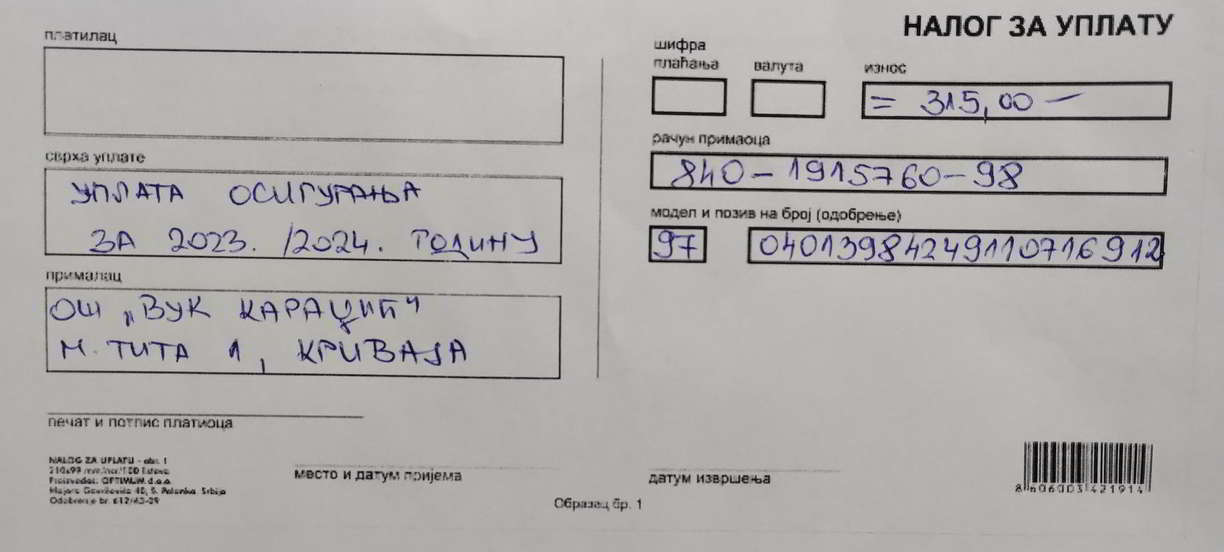 НАЛОГ ЗА УПЛАТУ
платилац
сврха уплате
УПЛАТА ОСИГУРАЊА
ЗА 2023. /2024. ГОДИНУ
прималац
ОШ „ВУК КАРАЏИЋ"
М. ТИТА 1, КРИВАЈА
печат и потпис платиоца
шифра
плаћања
валута
износ
= 315,00 —
рачун примаоца
840-1915760-98
модел и позив на број (одобрење)
97
04013984249110716912
NALOG ZA UPLATU - obr. 1
OPTIMUM d.o.o.
S. Palanka, Srbija
место и датум пријема
датум извршења
Образац бр. 1
8 606003 421914